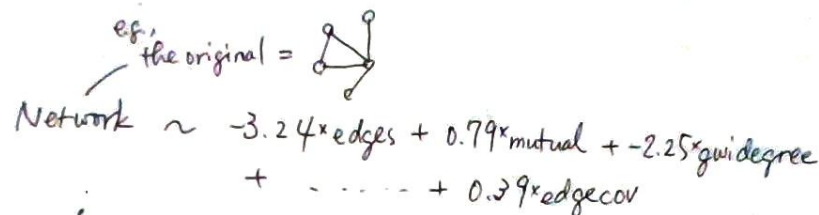 e.g.,
the original =
Network ~ -3.24*edges + 0.79*mutual + -2.25*gwidegree
+ ...... + 0.39*edgecov